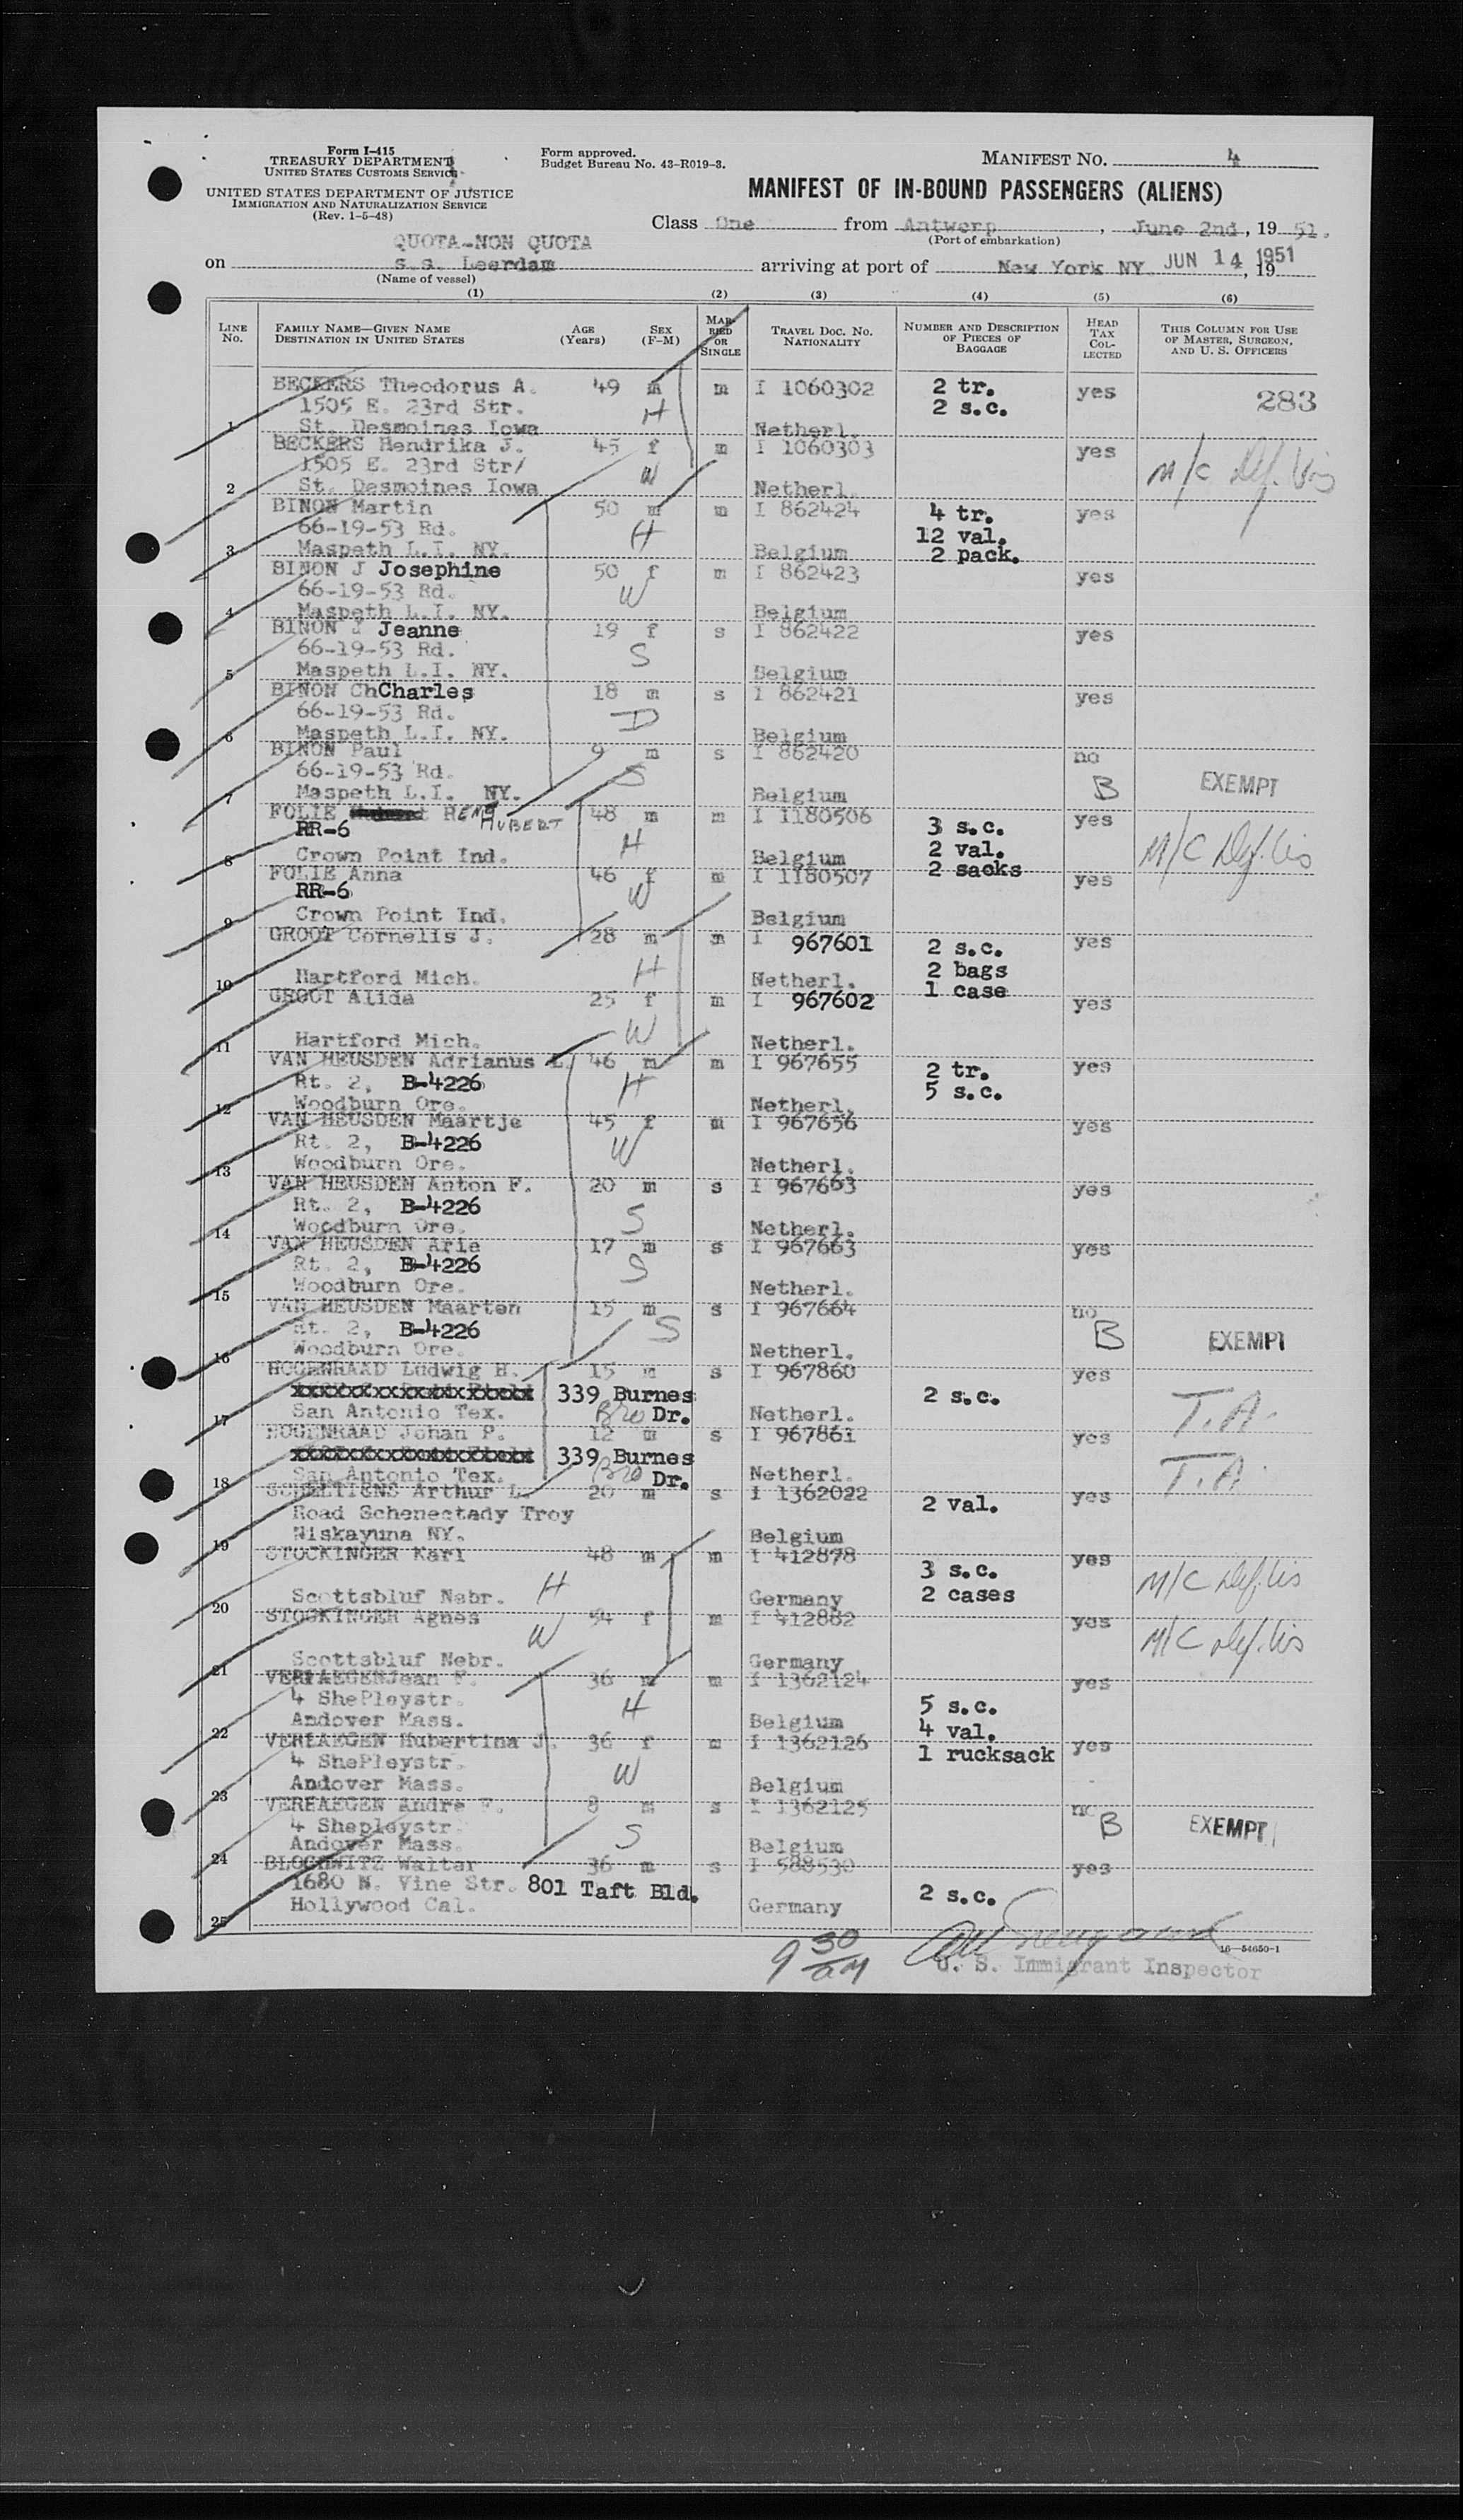 Form I-415
TREASURY DEPARTMENT
UNITED STATES CUSTOMS SERVICE
UNITED STATES DEPARTMENT OF JUSTICE
IMMIGRATION AND NATURALIZATION SERVICE
(Rev. 1-5-48)
Form approved.
Budget Bureau No. 43-R019-3.
MANIFEST NO. 4
MANIFEST OF IN-BOUND PASSENGERS (ALIENS)
Class One from Antwerp, June 2nd, 1951.
(Port of embarkation)
QUOTA-NON QUOTA
on s.s. Leerdam arriving at port of New York NY. JUN 14 1951, 19
(Name of vessel)
(1) (2) (3) (4) (5) (6)
LINE No. FAMILY NAME—GIVEN NAME DESTINATION IN UNITED STATES AGE (Years) SEX (F-M) MARRIED OR SINGLE TRAVEL DOC. NO. NATIONALITY NUMBER AND DESCRIPTION OF PIECES OF BAGGAGE HEAD TAX COLLECTED THIS COLUMN FOR USE OF MASTER, SURGEON, AND U. S. OFFICERS
BECKERS Theodorus A. 49 m m I 1060302 2 tr. yes 283
1505 E. 23rd Str. H 2 s.c.
1 St. Desmoines Iowa Netherl.
BECKERS Hendrika J. 45 f m I 1060303 yes
1505 E. 23rd Str/ W M/C Def. Vis
2 St. Desmoines Iowa Netherl.
BINON Martin 50 m m I 862424 4 tr. yes
66-19-53 Rd. H 12 val.
3 Maspeth L.I. NY. Belgium 2 pack.
BINON J Josephine 50 f m I 862423 yes
66-19-53 Rd. W
4 Maspeth L.I. NY. Belgium
BINON J Jeanne 19 f s I 862422 yes
66-19-53 Rd. S
5 Maspeth L.I. NY. Belgium
BINON ChCharles 18 m s I 862421 yes
66-19-53 Rd. D
6 Maspeth L.I. NY. Belgium
BINON Paul 9 m s I 862420 no
66-19-53 Rd. S B EXEMPT
7 Maspeth L.I. NY. Belgium
FOLIE RENE HUBERT 48 m m I 1180506 3 s.c. yes
RR-6 H 2 val. M/C Def. Vis
8 Crown Point Ind. Belgium 2 sacks
FOLIE Anna 46 f m I 1180507 yes
RR-6 W
9 Crown Point Ind. Belgium
GROOT Cornelis J. 28 m m I 967601 2 s.c. yes
H 2 bags
10 Hartford Mich. Netherl. 1 case
GROOT Alida 25 f m I 967602 yes
W
11 Hartford Mich. Netherl.
VAN HEUSDEN Adrianus L. 46 m m I 967655 2 tr. yes
Rt. 2, B-4226 H 5 s.c.
12 Woodburn Ore. Netherl.
VAN HEUSDEN Maartje 45 f m I 967656 yes
Rt. 2, B-4226 W
13 Woodburn Ore. Netherl.
VAN HEUSDEN Anton F. 20 m s I 967663 yes
Rt. 2, B-4226 S
14 Woodburn Ore. Netherl.
VAN HEUSDEN Arie 17 m s I 967663 yes
Rt. 2, B-4226 S
15 Woodburn Ore. Netherl.
VAN HEUSDEN Maarten 15 m s I 967664 no
Rt. 2, B-4226 S B EXEMPT
16 Woodburn Ore. Netherl.
HOGENRAAD Ludwig H. 15 m s I 967860 yes
339 Burnes 2 s.c. T.A.
17 San Antonio Tex. Bro Dr. Netherl.
HOGENRAAD Johan P. 12 m s I 967861 yes
339 Burnes T.A.
18 San Antonio Tex. Bro Dr. Netherl.
Arthur L. 20 m s I 1362022 2 val. yes
Road Schenectady Troy
19 Niskayuna NY. Belgium
STOCKINGER Karl 48 m m I 412878 3 s.c. yes
H 2 cases M/C Def. Vis
20 Scottsbluf Nebr. Germany
STOCKINGER Agnes 54 f m I 412882 yes
W M/C Def. Vis
21 Scottsbluf Nebr. Germany
VERLAEGENJean F. 36 m m I 1362124 yes
4 ShePleystr. H 5 s.c.
22 Andover Mass. Belgium 4 val.
VERLAEGEN Hubertina J. 36 f m I 1362126 1 rucksack yes
4 ShePleystr. W
23 Andover Mass. Belgium
VERLAEGEN Andre F. 8 m s I 1362125 no
4 Shepleystr. S B EXEMPT
24 Andover Mass. Belgium
BLOCHWITZ Walter 36 m s I 588530 yes
1680 N. Vine Str. 801 Taft Bld. 2 s.c.
25 Hollywood Cal. Germany
9 30 AM
16—54650-1
U. S. Immigrant Inspector